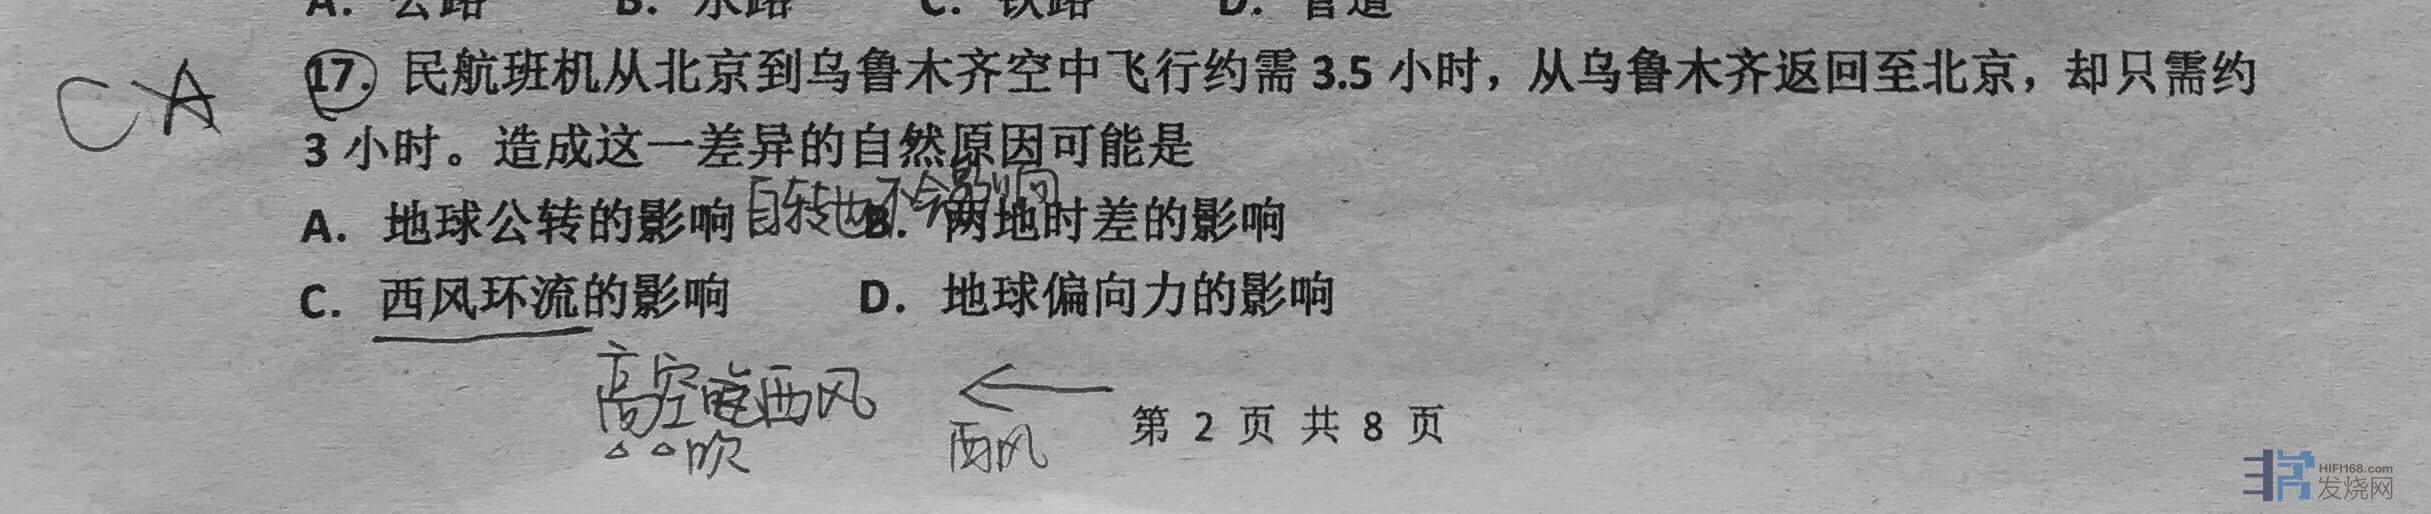 A. 公路 B. 水路 C. 铁路 D. 管道
CA
17. 民航班机从北京到乌鲁木齐空中飞行约需 3.5 小时，从乌鲁木齐返回至北京，却只需约
3 小时。造成这一差异的自然原因可能是
自转也不会影响
A. 地球公转的影响 B. 两地时差的影响
C. 西风环流的影响 D. 地球偏向力的影响
高空吹西风
吹
西风
第 2 页 共 8 页
HIFI168.com
发烧网